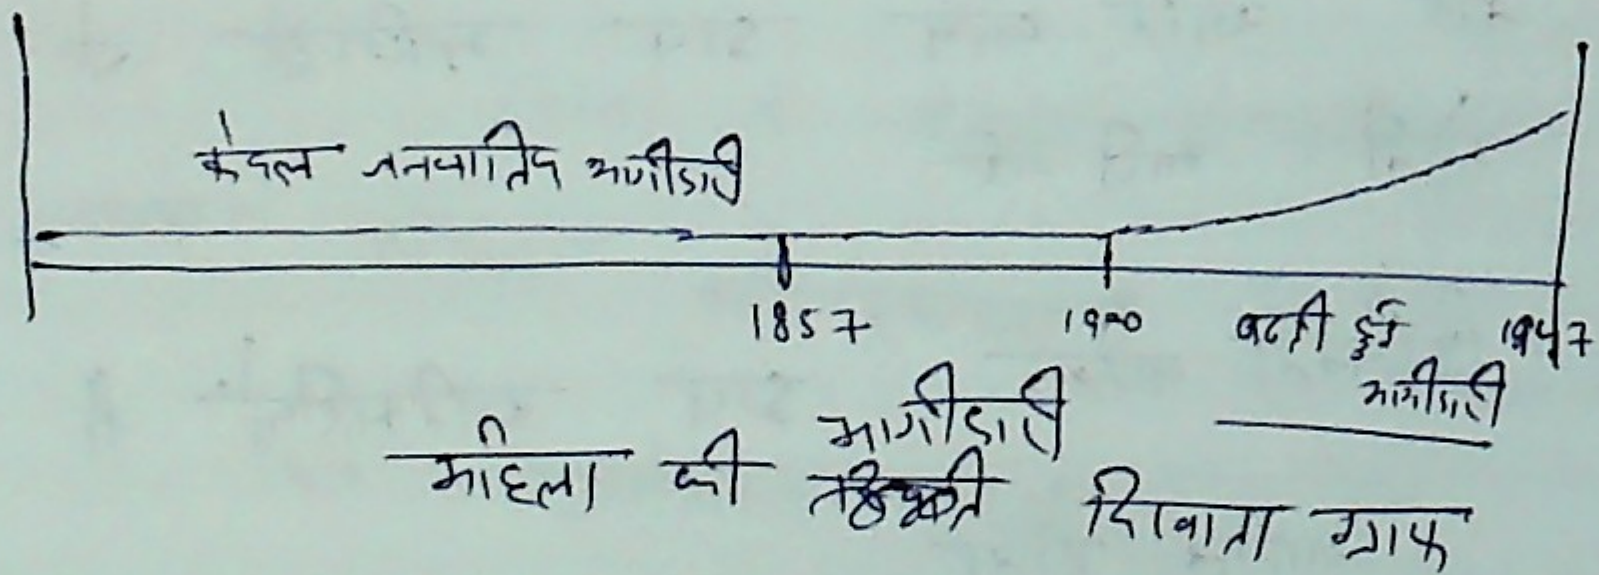 केवल जनजातिय भागीदारी
1857 1900 बढती हुई 1947
भागीदारी
महिला की भागीदारी दिखाता ग्राफ